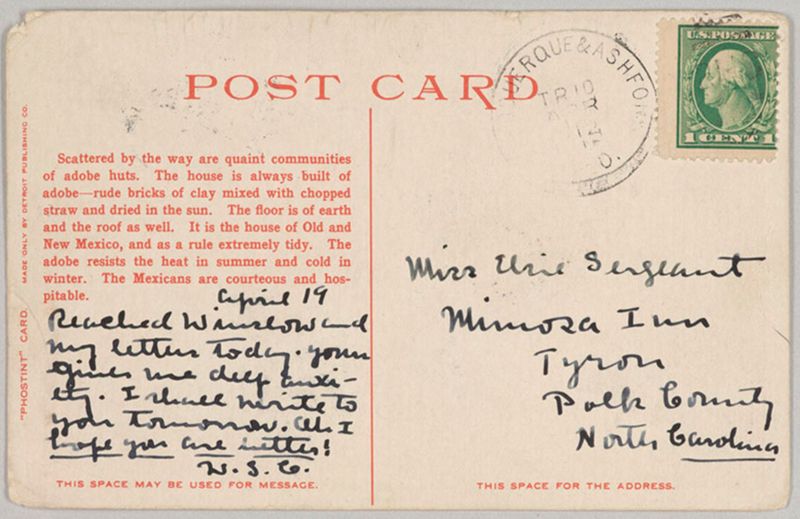 POST CARD
UERQUE & ASHFOR
TR 10
U.S. POSTAGE
1 CENT 1
MADE ONLY BY DETROIT PUBLISHING CO.
"PHOSTINT" CARD.
Scattered by the way are quaint communities
of adobe huts. The house is always built of
adobe—rude bricks of clay mixed with chopped
straw and dried in the sun. The floor is of earth
and the roof as well. It is the house of Old and
New Mexico, and as a rule extremely tidy. The
adobe resists the heat in summer and cold in
winter. The Mexicans are courteous and hos-
pitable.
April 19
Reached Winslow and
my letters today. Yours
gives me deep anxi-
ety. I shall write to
you tomorrow. Oh I
hope you are better!
W.S.C.
THIS SPACE MAY BE USED FOR MESSAGE.
Miss Elsie Sergeant
Mimosa Inn
Tyron
Polk County
North Carolina
THIS SPACE FOR THE ADDRESS.